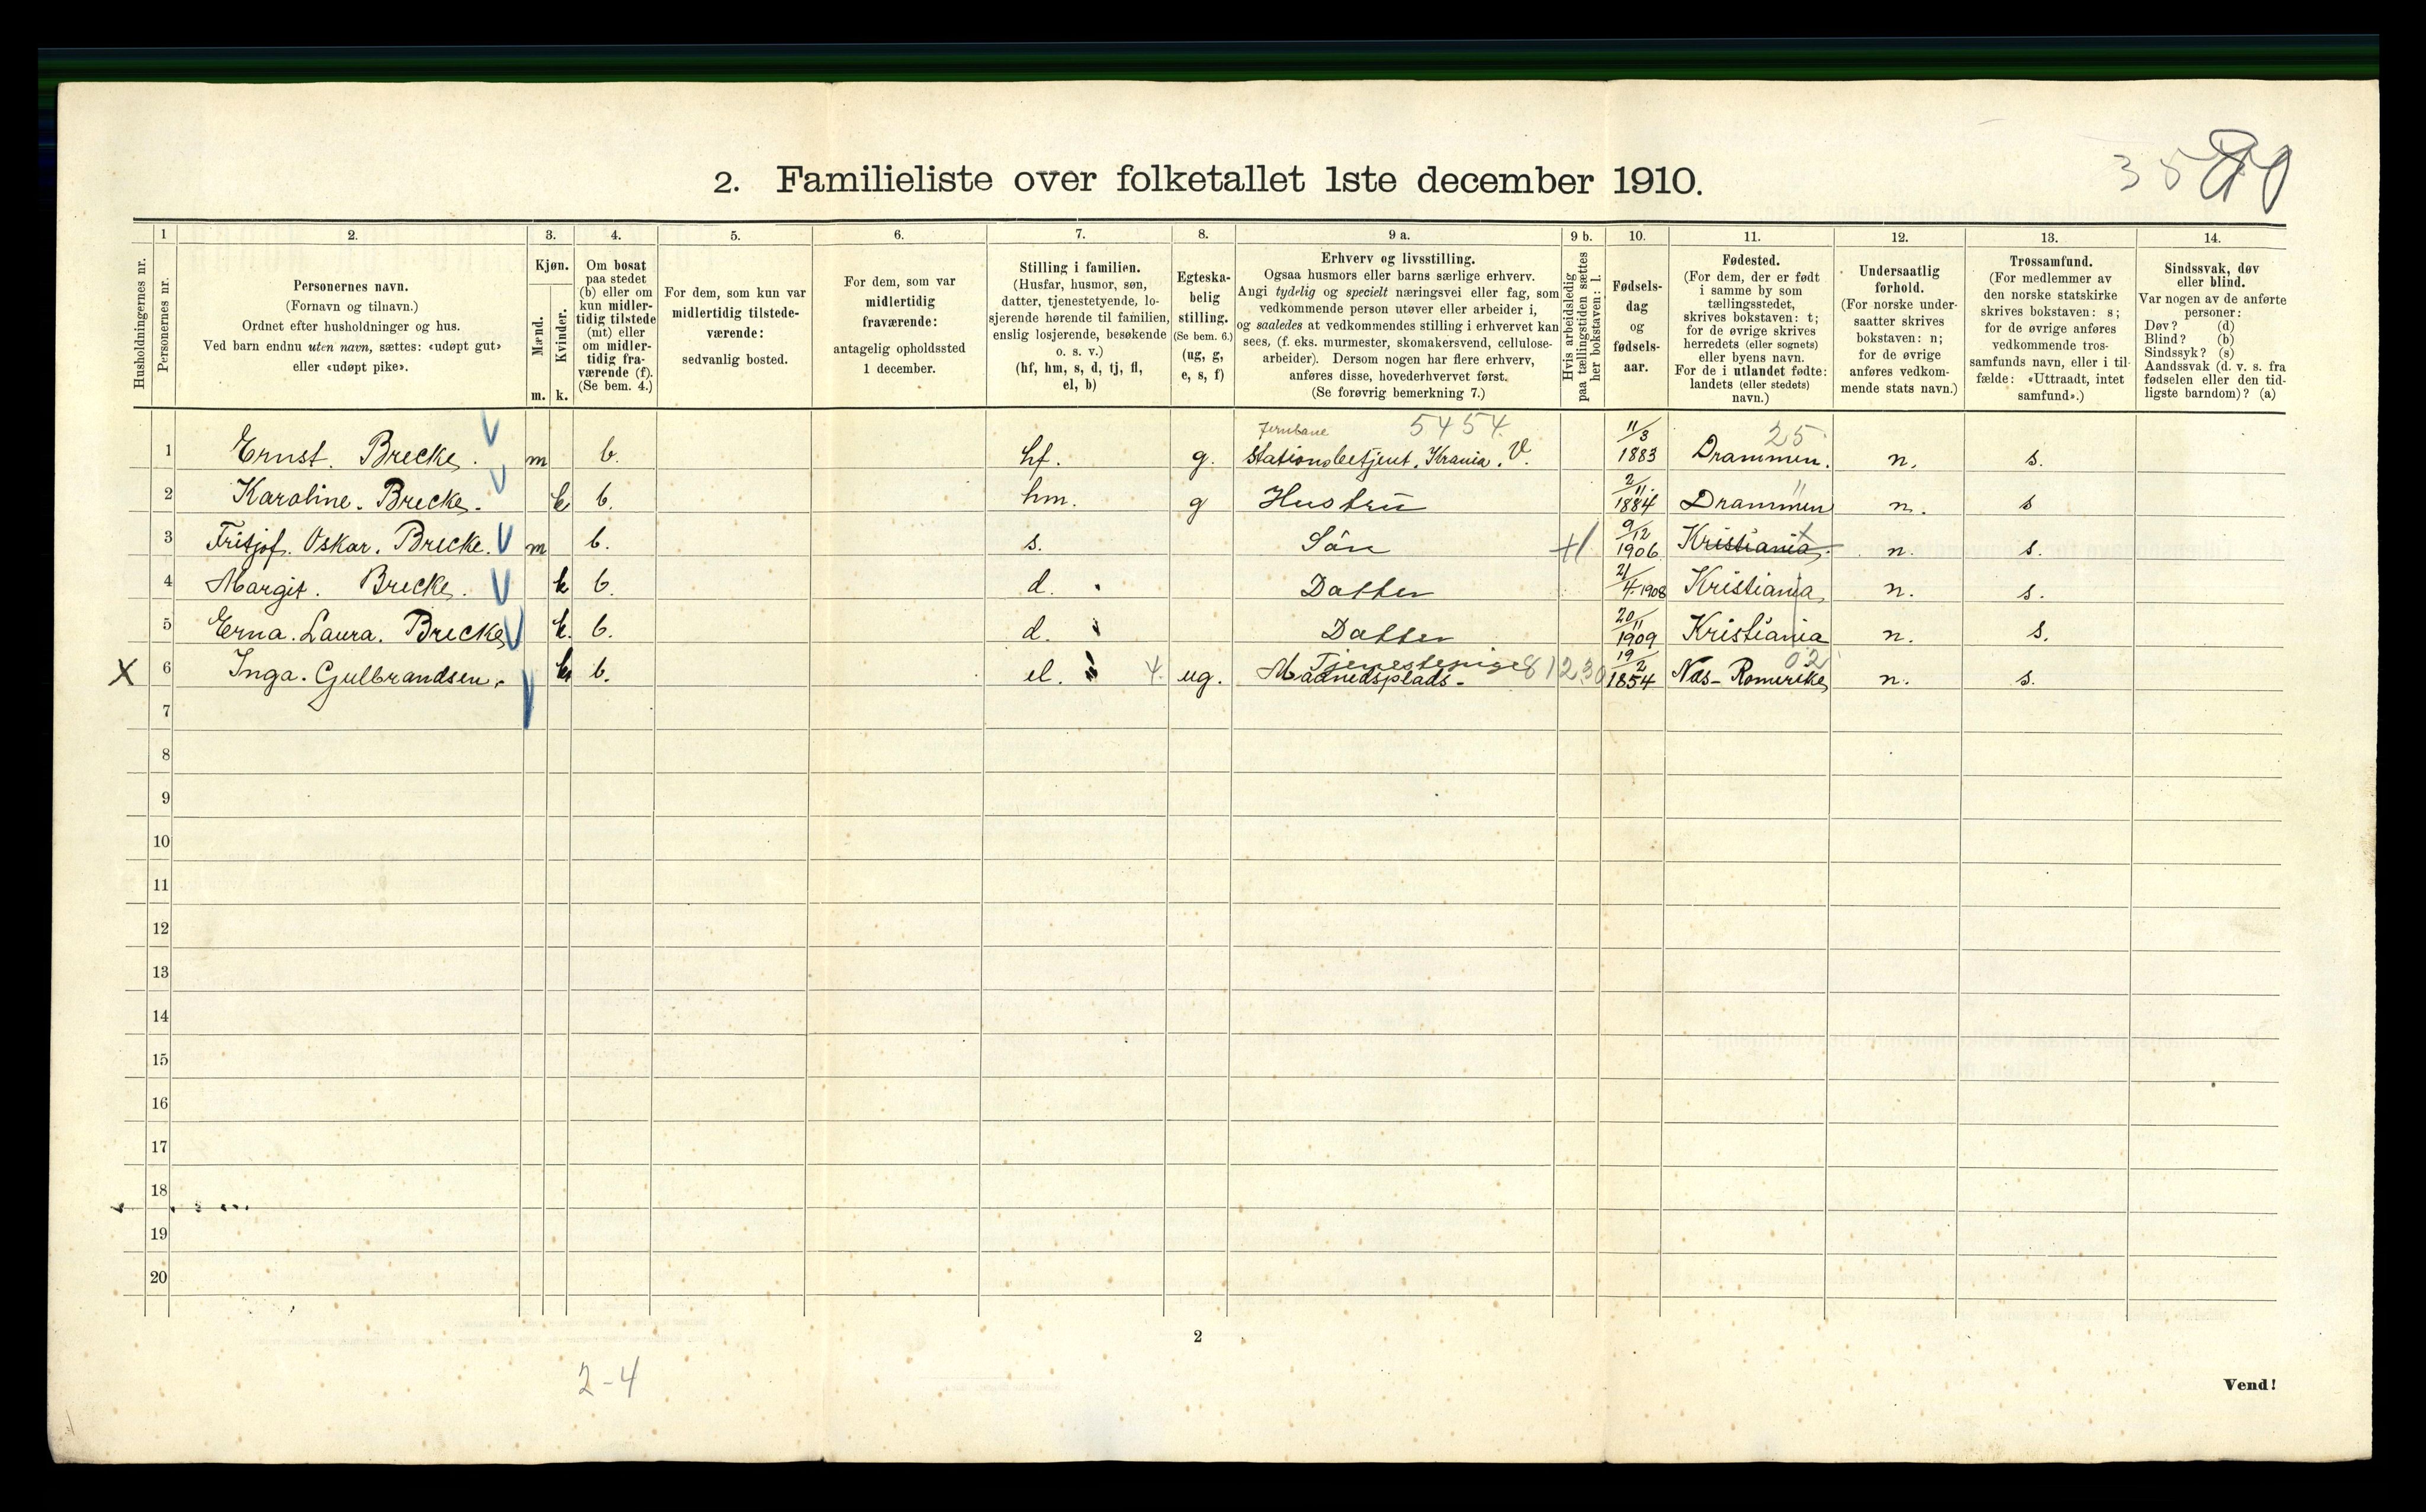 35
2. Familieliste over folketallet 1ste december 1910.
1 2. 3. 4. 5. 6. 7. 8. 9 a. 9 b. 10. 11. 12. 13. 14.
Husholdningernes nr.
Personernes nr.
Personernes navn.
(Fornavn og tilnavn.)
Ordnet efter husholdninger og hus.
Ved barn endnu uten navn, sættes: «udøpt gut»
eller «udøpt pike».
Kjøn.
Mænd.
Kvinder.
m. k.
Om bosat
paa stedet
(b) eller om
kun midler-
tidig tilstede
(mt) eller
om midler-
tidig fra-
værende (f).
(Se bem. 4.)
For dem, som kun var
midlertidig tilstede-
værende:
sedvanlig bosted.
For dem, som var
midlertidig
fraværende:
antagelig opholdssted
1 december.
Stilling i familien.
(Husfar, husmor, søn,
datter, tjenestetyende, lo-
sjerende hørende til familien,
enslig losjerende, besøkende
o. s. v.)
(hf, hm, s, d, tj, fl,
el, b)
Egteska-
belig
stilling.
(Se bem. 6.)
(ug, g,
e, s, f)
Erhverv og livsstilling.
Ogsaa husmors eller barns særlige erhverv.
Angi tydelig og specielt næringsvei eller fag, som
vedkommende person utøver eller arbeider i,
og saaledes at vedkommendes stilling i erhvervet kan
sees, (f. eks. murmester, skomakersvend, cellulose-
arbeider). Dersom nogen har flere erhverv,
anføres disse, hovederhvervet først.
(Se forøvrig bemerkning 7.)
Hvis arbeidsledig
paa tællingstiden sættes
her bokstaven: l.
Fødsels-
dag
og
fødsels-
aar.
Fødested.
(For dem, der er født
i samme by som
tællingsstedet,
skrives bokstaven: t;
for de øvrige skrives
herredets (eller sognets)
eller byens navn.
For de i utlandet fødte:
landets (eller stedets)
navn.)
Undersaatlig
forhold.
(For norske under-
saatter skrives
bokstaven: n;
for de øvrige
anføres vedkom-
mende stats navn.)
Trossamfund.
(For medlemmer av
den norske statskirke
skrives bokstaven: s;
for de øvrige anføres
vedkommende tros-
samfunds navn, eller i til-
fælde: «Uttraadt, intet
samfund».)
Sindssvak, døv
eller blind.
Var nogen av de anførte
personer:
Døv? (d)
Blind? (b)
Sindssyk? (s)
Aandssvak (d. v. s. fra
fødselen eller den tid-
ligste barndom)? (a)
Jernbane 5454. 11/3 25
1 Ernst. Brecke. m b. hf. g. Stationsbetjent. Krania. V. 1883 Drammen. n. s.
2 Karoline. Brecke. k b. hm. g Hustrü 2/11. 1884 Drammen n. s
3 Fritjof. Oskar. Brecke. m b. s. Sön 9/12 1906 Kristiania. n. s.
4 Margit. Brecke. k b. d. Datter 21/4 1908 Kristiania. n. s.
5 Erna. Laura. Brecke k. b. d. Datter 20/11 1909 Kristiania n. s.
X 6 Inga. Gulbrandsen. k b. el. 4. ug. Tjenestepige 81230 19/2 02
Maanedsplads. 1854 Næs-Romerike n. s.
7
8
9
10
11
12
13
14
15
16
17
18
19
20
2
2-4
Vend!